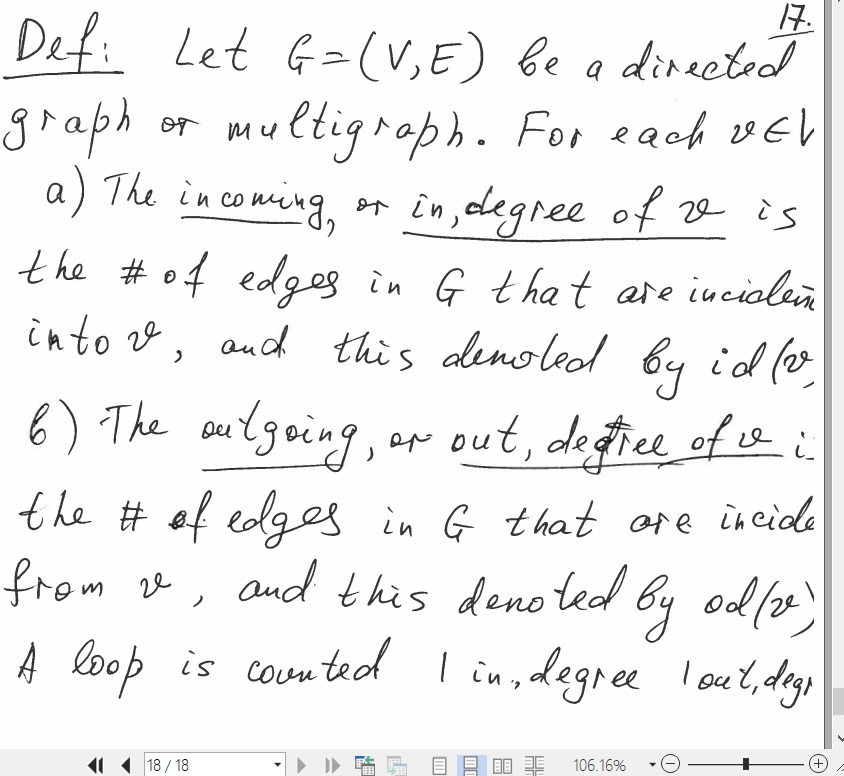 17.
Def: Let G=(V,E) be a directed
graph or multigraph. For each v∈V
a) The incoming, or in, degree of v is
the # of edges in G that are inciden
into v, and this denoted by id(v,
b) The outgoing, or out, degree of v i
the # of edges in G that are incide
from v, and this denoted by od(v)
A loop is counted 1 in, degree 1 out, degr
18 / 18
106.16%